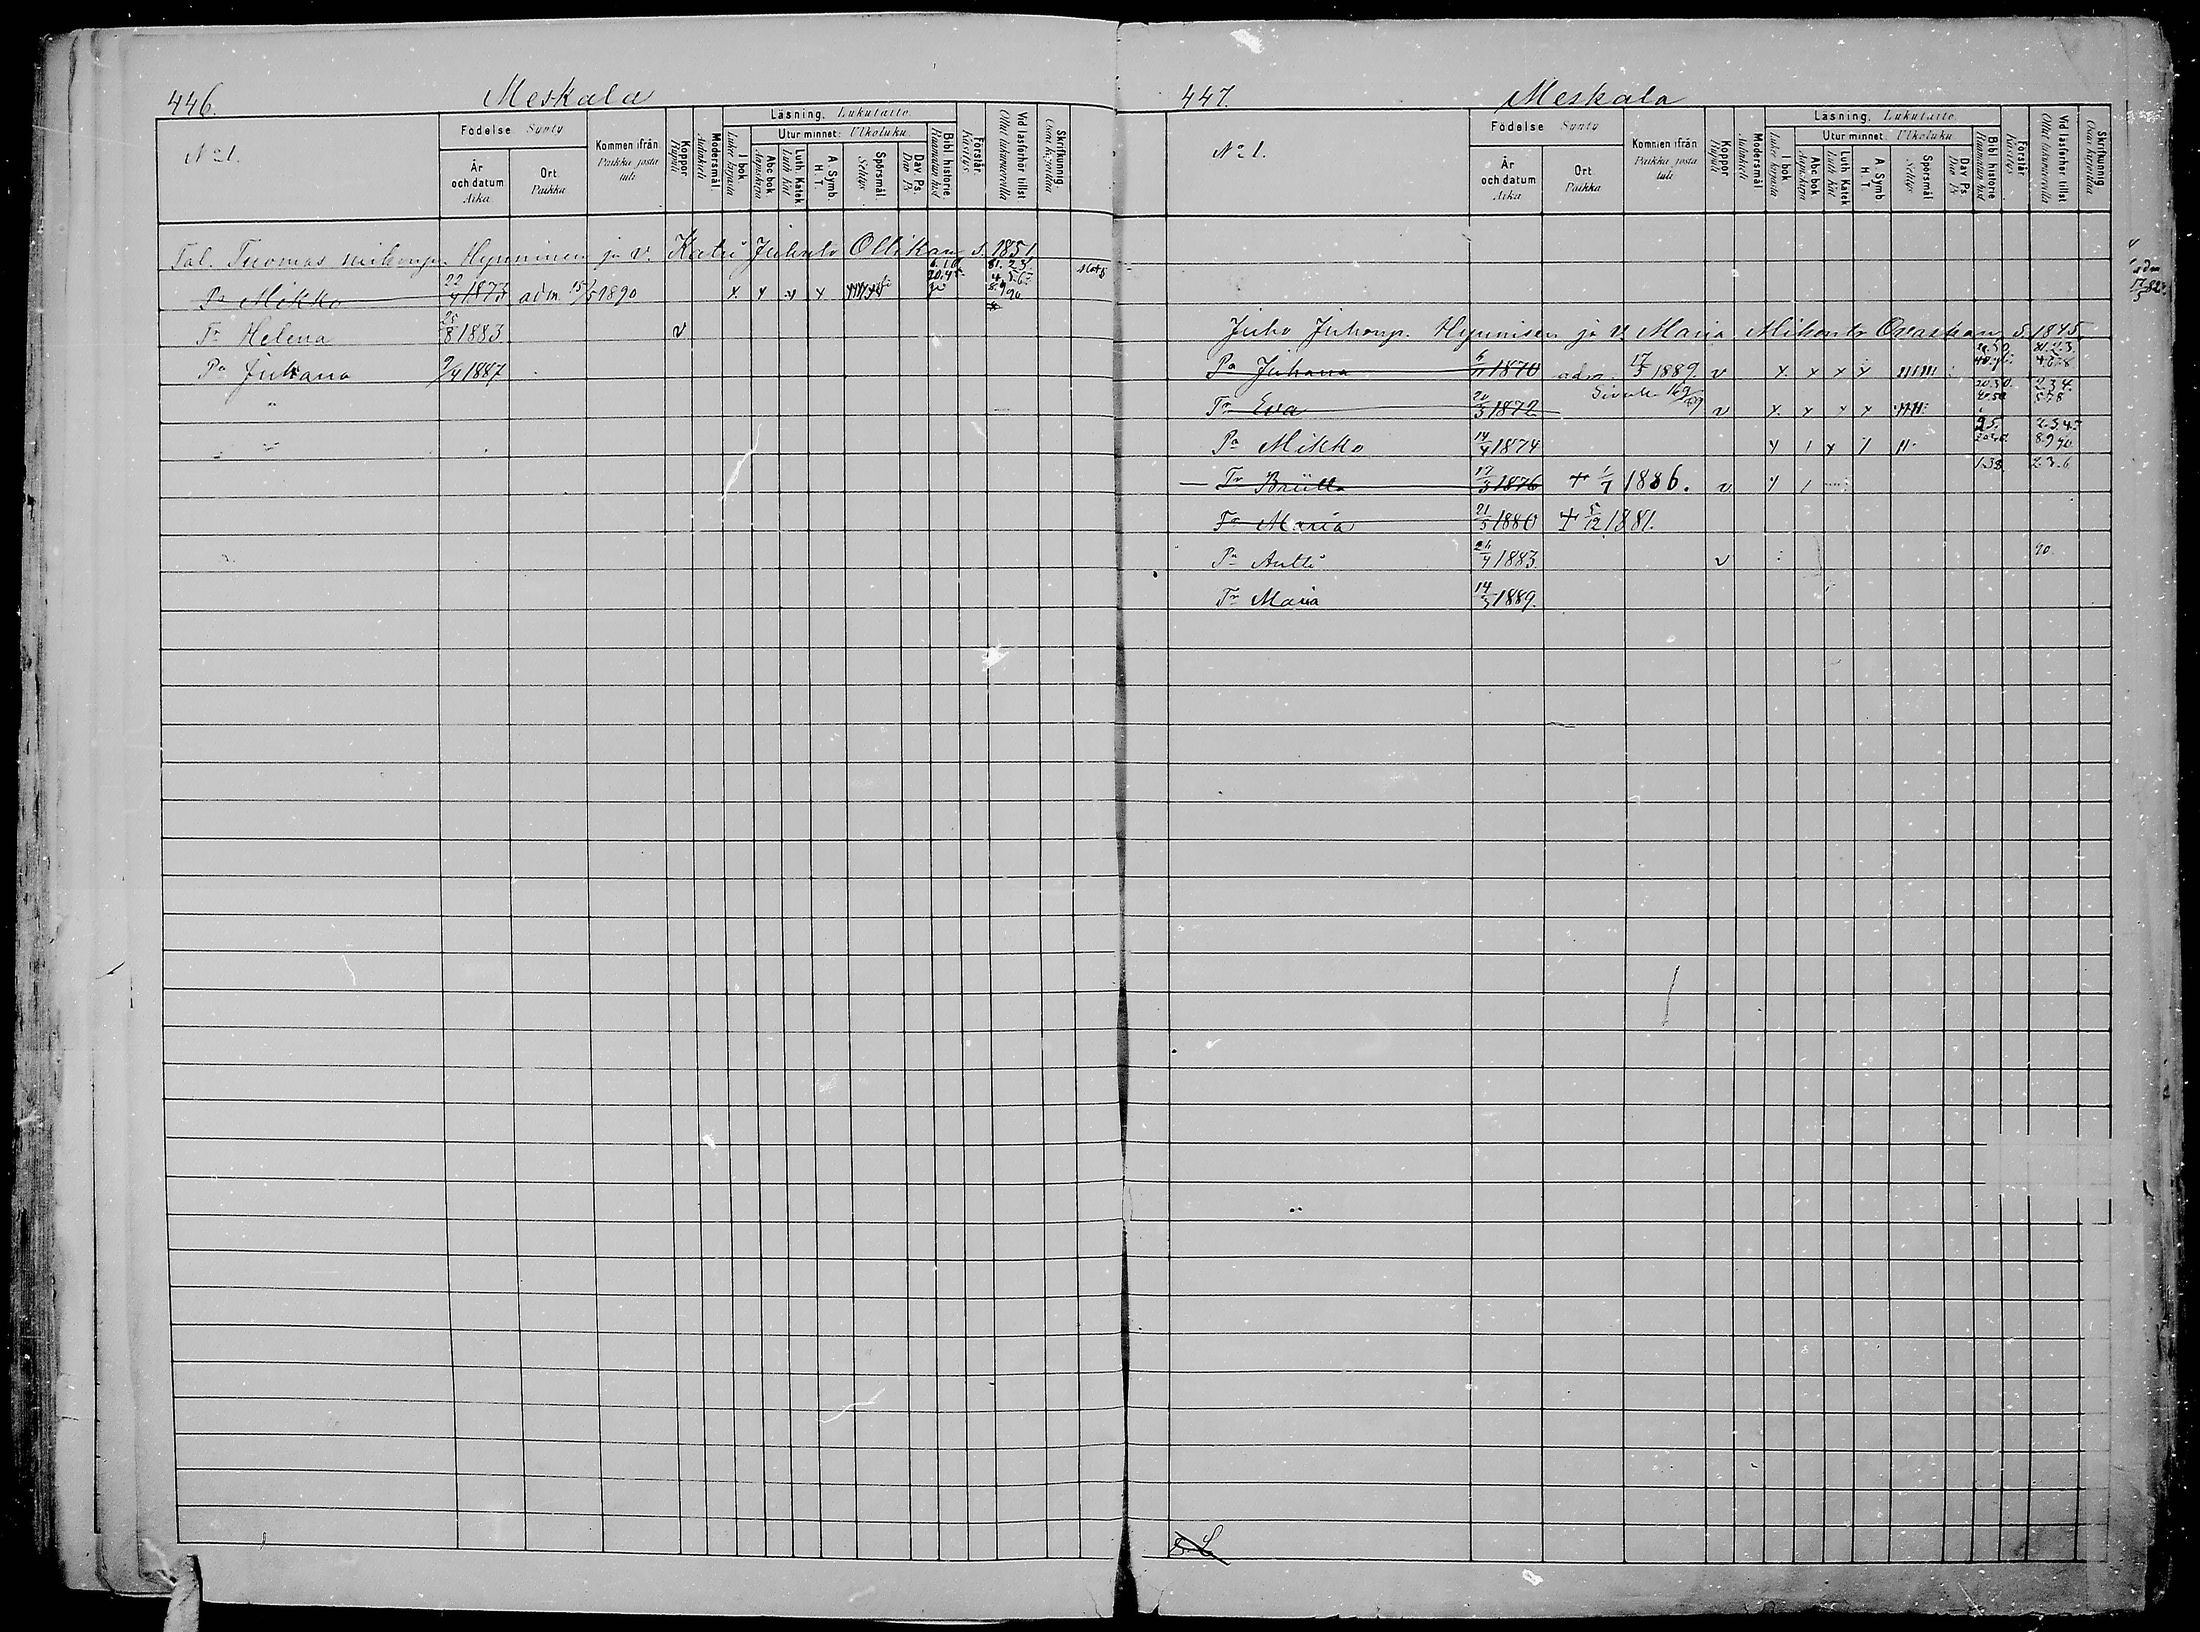 446. Meskala
Födelse Synty
År och datum Aika
Ort Paikka
Kommen ifrån Paikka josta tuli
Koppor Rupuli
Modersmål Äidinkieli
Läsning. Lukutaito
I bok Lukee kirjasta
Utur minnet: Ulkoluku
Abc bok Aapiskirja
Luth. Katek Luth kat
A Symb. H. T.
Spörsmål. Selitys
Dav Ps. Dav Ps
Bibl historie. Raamatun hist
Förstår. Käsitys
Vid läsförhör tillst Ollut lukuvuorolla
Skrifkunnig. Osaa kirjoittaa
No 1.
Tal. Tuomas Hynninen ja v. Katri Juhntr Ollikan s. 1851
Pa Mikko 22/4 1873 adm. 15/5 1890 x x x x
Tr Helena 25/8 1883 v
Pa Juhana 9/4 1887
447. Meskala
Födelse Synty
År och datum Aika
Ort Paikka
Kommen ifrån Paikka josta tuli
Koppor Rupuli
Modersmål Äidinkieli
Läsning. Lukutaito
I bok Lukee kirjasta
Utur minnet: Ulkoluku
Abc bok Aapiskirja
Luth Katek Luth kat
A Symb H. T.
Spörsmål Selitys
Dav Ps. Dav Ps
Bibl historie Raamatun hist
Förstår Käsitys
Vid läsförhör tillst Ollut lukuvuorolla
Skrifkunnig Osaa kirjoittaa
No 1.
Juho Juhonp. Hynnisen ja v. Maria Mikontr Ovaskan s. 1845
Pa Juhana 6/11 1870 adm. 17/5 1889. v x x x x
Tr Eva 20/3 1872 v x x x x
Pa Mikko 14/4 1874
Tr Briitta 17/3 1876 + 1/7 1886. v
Tr Maria 21/5 1880 + 5/12 1881.
Pa Antti 26/4 1883 v 90
Tr Maria 14/3 1889.